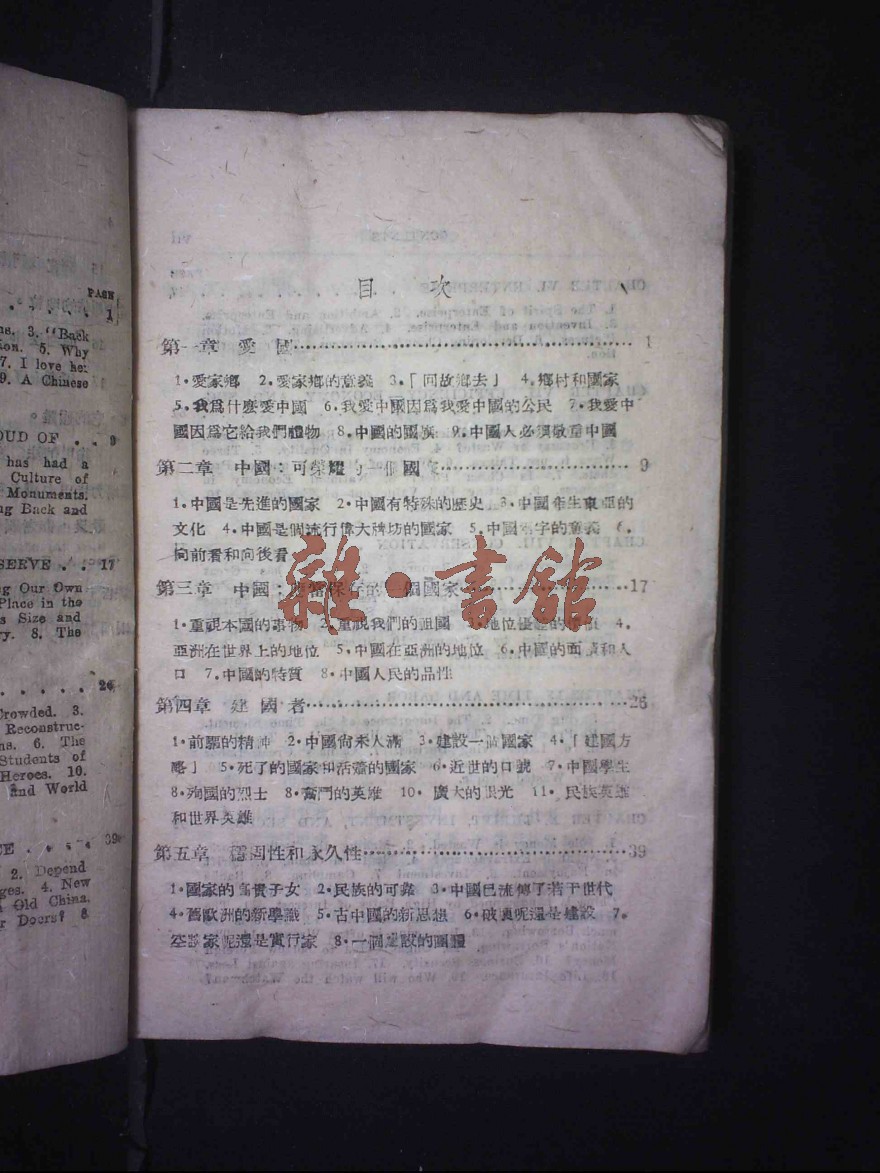 PAGE
. . . . . 1
ns. 3. "Back
ion. 5. Why
7. I love her
9. A Chinese
OUD OF . . 9
has had a
Culture of
Monuments.
ng Back and
SERVE . . 17
ng Our Own
Place in the
s Size and
ry. 8. The
. . . . . 26
Crowded. 3.
Reconstruc-
ns. 6. The
Students of
Heroes. 10.
and World
CE . . . . 39
2. Depend
ges. 4. New
Old China.
r Doers? 8
目 次
第一章 愛 國 1
1·愛家鄉 2·愛家鄉的意義 3·「回故鄉去」 4·鄉村和國家
5·我爲什麼愛中國 6·我愛中國因爲我愛中國的公民 7·我愛中
國因爲它給我們禮物 8·中國的國旗 9·中國人必須敬重中國
第二章 中國：可榮耀的一個國家 9
1·中國是先進的國家 2·中國有特殊的歷史 3·中國產生東亞的
文化 4·中國是個流行偉大牌坊的國家 5·中國名字的意義 6·
向前看和向後看
第三章 中國：應當保存的一個國家 17
1·重視本國的事物 2·重視我們的祖國 地位優越的 4·
亞洲在世界上的地位 5·中國在亞洲的地位 6·中國的面積和人
口 7·中國的特質 8·中國人民的品性
雜·書館
第四章 建國者 26
1·前驅的精神 2·中國尙未人滿 3·建設一個國家 4·「建國方
略」 5·死了的國家和活着的國家 6·近世的口號 7·中國學生
8·殉國的烈士 8·奮鬥的英雄 10· 廣大的眼光 11· 民族英雄
和世界英雄
第五章 穩固性和永久性 39
1·國家的高貴子女 2·民族的可靠 3·中國已流傳了若干世代
4·舊歐洲的新學識 5·古中國的新思想 6·破壞呢還是建設 7·
空談家呢還是實行家 8·一個建設的團體